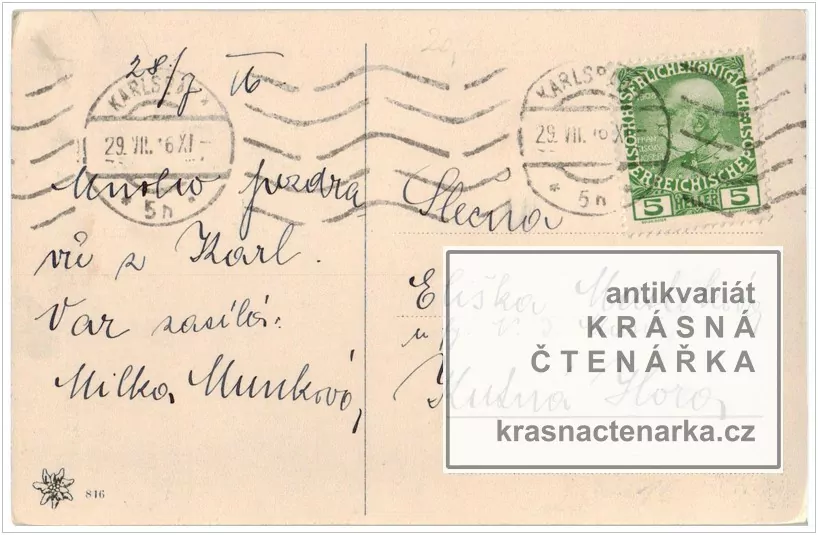 28/7 16
KARLSBAD
29. VII. 16 XI-
* 5n *
Mnoho pozdra
vů z Karl.
Var zasílá:
Milka Munková
816
KARLSBAD
29. VII. 16 X
* 5n
KAISERLICHE KÖNIGLICHE
ÖSTERREICHISCHE POST
5 HELLER 5
Slečna
Eliška
Kutná Hora
antikvariát
KRÁSNÁ
ČTENÁŘKA
krasnactenarka.cz